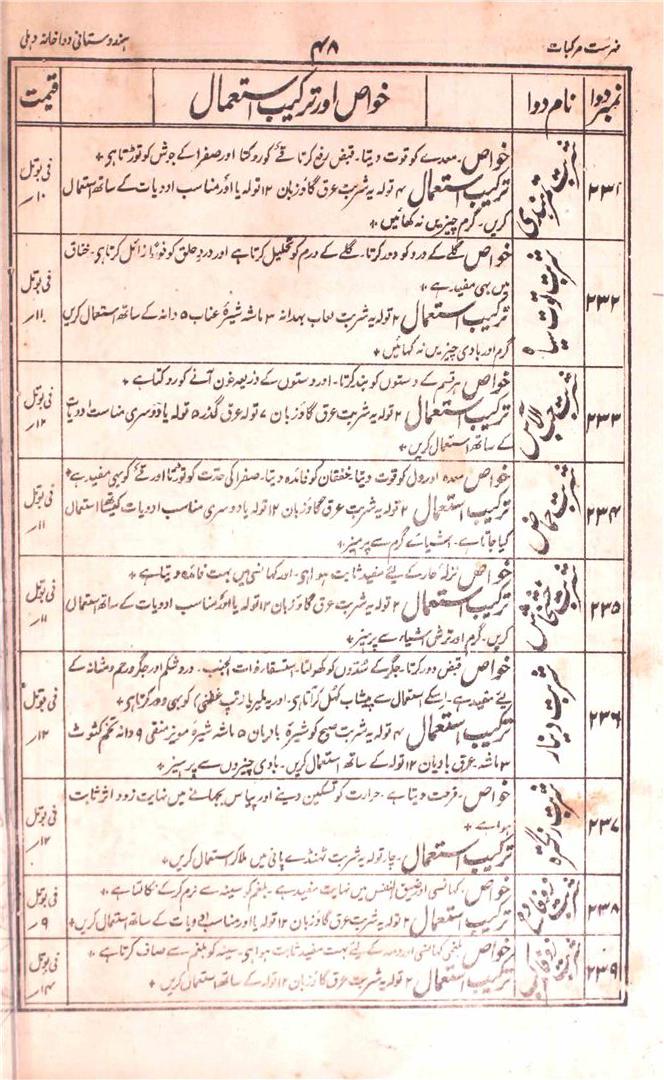 فہرست مرکبات ۴۸ ہندوستانی دواخانہ دہلی
نمبر دوا نام دوا خواص اور ترکیب استعمال قیمت
۲۳۱ شربت تمرہندی
خواص ۔ معدے کو قوت دیتا ۔ قبض رفع کرتا قے کو روکتا اور صفرا کے جوش کو توڑتا ہی ٭
ترکیب استعمال ۴ تولہ یہ شربت عرق گاؤزبان ۱۲ تولہ یا اور مناسب ادویات کے ساتھ استعمال
کریں ۔ گرم چیزیں نہ کھائیں ٭
فی بوتل
۱۰؍
۲۳۲ شربت توت سیاہ
خواص گلے کے درد کو دور کرتا ۔ گلے کے ورم کو تحلیل کرتا ہے اور درد حلق کو فوراً زائل کرتا ہی ۔ خناق
میں بھی مفید ہے ٭
ترکیب استعمال ۲ تولہ یہ شربت لعاب بہدانہ ۳ ماشہ شیرۂ عناب ۵ دانہ کے ساتھ استعمال کریں
گرم اور بادی چیزیں نہ کھائیں ٭
فی بوتل
۱۱؍
۲۳۳ شربت حب الآس
خواص ہر قسم کے دستوں کو بند کرتا ۔ اور دستوں کے ذریعہ خون آنے کو روکتا ہے ٭
ترکیب استعمال ۲ تولہ یہ شربت عرق گاؤزبان ۷ تولہ عرق گذر ۵ تولہ یا دوسری مناسب ادویات
کے ساتھ استعمال کریں ٭
فی بوتل
۱۲؍
۲۳۴ شربت حماض
خواص معدہ اور دل کو قوت دیتا ۔ خفقان کو فائدہ دیتا ۔ صفرا کی حدت کو توڑتا اور قے کو بھی مفید ہے ٭
ترکیب استعمال ۲ تولہ یہ شربت عرق گاؤزبان ۱۲ تولہ یا دوسری مناسب ادویات کیساتھ استعمال
کیا جاتا ہے ۔ اشیائے گرم سے پرہیز ٭
فی بوتل
۱۱؍
۲۳۵ شربت خشخاش
خواص نزلہ حار کے لئے مفید ثابت ہوا ہی ۔ اور کھانسی میں بہت فائدہ دیتا ہے ٭
ترکیب استعمال ۲ تولہ یہ شربت عرق گاؤزبان ۱۲ تولہ یا اور مناسب ادویات کے ساتھ استعمال
کریں ۔ گرم اور ترش اشیاء سے پرہیز ٭
فی بوتل
۱۱؍
۲۳۶ شربت دینار
خواص قبض دور کرتا ۔ جگر کے سدوں کو کھولتا ۔ استسقا ۔ ذات الجنب ۔ درد شکم اور جگر و رحم و مثانہ کے
لئے مفید ہے ۔ اسکے استعمال سے پیشاب کھل کر آتا ہی ۔ اور یہ ملیریا (تپ عفنی) کو بھی دور کرتا ہی ٭
ترکیب استعمال ۴ تولہ یہ شربت صبح کو شیرۂ بادیان ۵ ماشہ شیرۂ مویز منقی ۹ دانہ تخم کثوث
۳ ماشہ ۔ عرق بادیان ۱۲ تولہ کے ساتھ استعمال کریں ۔ بادی چیزوں سے پرہیز ٭
فی بوتل
۱۲؍
۲۳۷ شربت رنگترہ
خواص ۔ فرحت دیتا ہے ۔ حرارت کو تسکین دینے اور پیاس بجھانے میں نہایت زود اثر ثابت
ہوا ہے ٭
ترکیب استعمال ۔ چار تولہ یہ شربت ٹھنڈے پانی میں ملا کر استعمال کریں ٭
فی بوتل
۱۲؍
۲۳۸ شربت زوفا سادہ
خواص ۔ کھانسی اور ضیق النفس میں نہایت مفید ہے ۔ بلغم کو سینہ سے نرم کر کے نکالتا ہے ٭
ترکیب استعمال ۲ تولہ یہ شربت عرق گاؤزبان ۱۲ تولہ یا اور مناسب ادویات کے ساتھ استعمال کریں ٭
فی بوتل
۹؍
۲۳۹ شربت زوفا مرکب
خواص بلغمی کھانسی اور دمہ کے لئے بہت مفید ثابت ہوا ہی ۔ سینہ کو بلغم سے صاف کرتا ہے ٭
ترکیب استعمال ۲ تولہ یہ شربت عرق گاؤزبان ۱۲ تولہ کے ساتھ استعمال کریں ٭
فی بوتل
۱۴؍